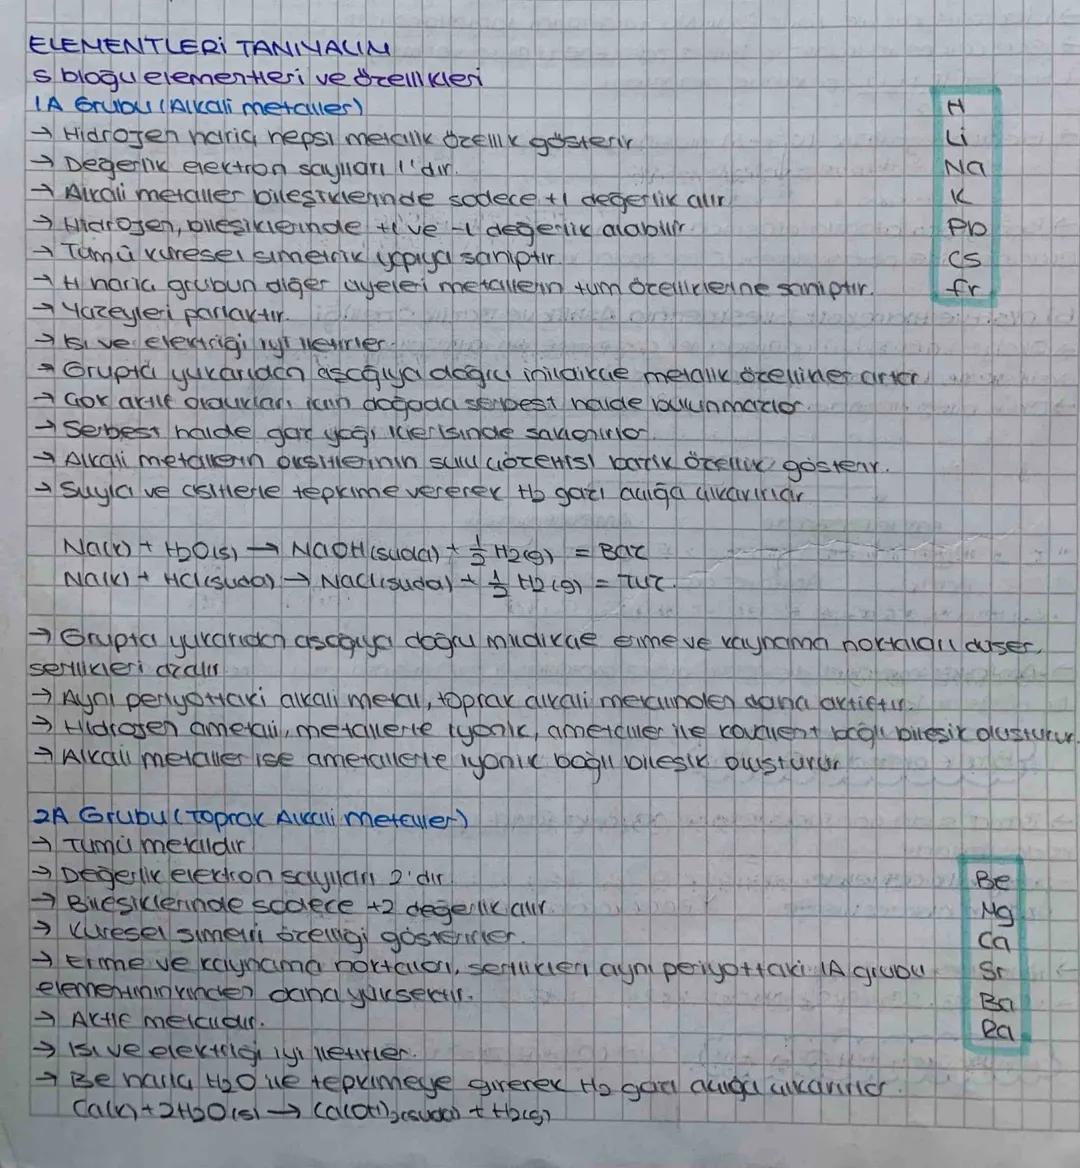 ELEMENTLERİ TANIYALIM
S bloğu elementleri ve özellikleri
1A Grubu (Alkali metaller)
→ Hidrojen hariç hepsi metalik özellik gösterir
→ Değerlik elektron sayıları 1'dir.
→ Alkali metaller bileşiklerinde sadece +1 değerlik alır
→ Hidrojen, bileşiklerinde +1 ve -1 değerlik alabilir
→ Tümü küresel simetrik yapıya sahiptir.
→ H hariç grubun diğer üyeleri metallerin tüm özelliklerine sahiptir.
→ Yüzeyleri parlaktır.
→ Isı ve elektriği iyi iletirler.
→ Grupta yukarıdan aşağıya doğru inildikçe metalik özellikler artar.
→ Çok aktif oldukları için doğada serbest halde bulunmazlar.
→ Serbest halde gaz yağı içerisinde saklanırlar.
→ Alkali metallerin oksitlerinin sulu çözeltisi bazik özellik gösterir.
→ Suyla ve asitlerle tepkime vererek H2 gazı açığa çıkarırlar
H
Li
Na
K
Rb
Cs
fr
Na(k) + H2O(s) → NaOH(suda) + 1/2 H2(g) = Baz
Na(k) + HCl(suda) → NaCl(suda) + 1/2 H2(g) = Tuz.
→ Grupta yukarıdan aşağıya doğru inildikçe erime ve kaynama noktaları düşer,
sertlikleri azalır.
→ Aynı periyottaki alkali metal, toprak alkali metalinden daha aktiftir.
→ Hidrojen ametali, metallerle iyonik, ametaller ile kovalent bağlı bileşik oluşturur.
→ Alkali metaller ise ametallerle iyonik bağlı bileşik oluşturur
2A Grubu (Toprak Alkali metaller)
→ Tümü metaldir
→ Değerlik elektron sayıları 2'dir.
→ Bileşiklerinde sadece +2 değerlik alır.
→ Küresel simetri özelliği gösterirler.
→ Erime ve kaynama noktaları, sertlikleri aynı periyottaki 1A grubu
elementininkinden daha yüksektir.
→ Aktif metaldir.
→ Isı ve elektriği iyi iletirler.
→ Be hariç H2O ile tepkimeye girerek H2 gazı açığa çıkarırlar.
Ca(k) + 2H2O(s) → Ca(OH)2(suda) + H2(g)
Be
Mg
Ca
Sr
Ba
Ra